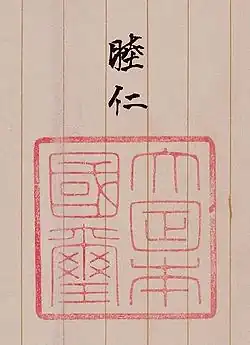 睦仁
大日本
國璽